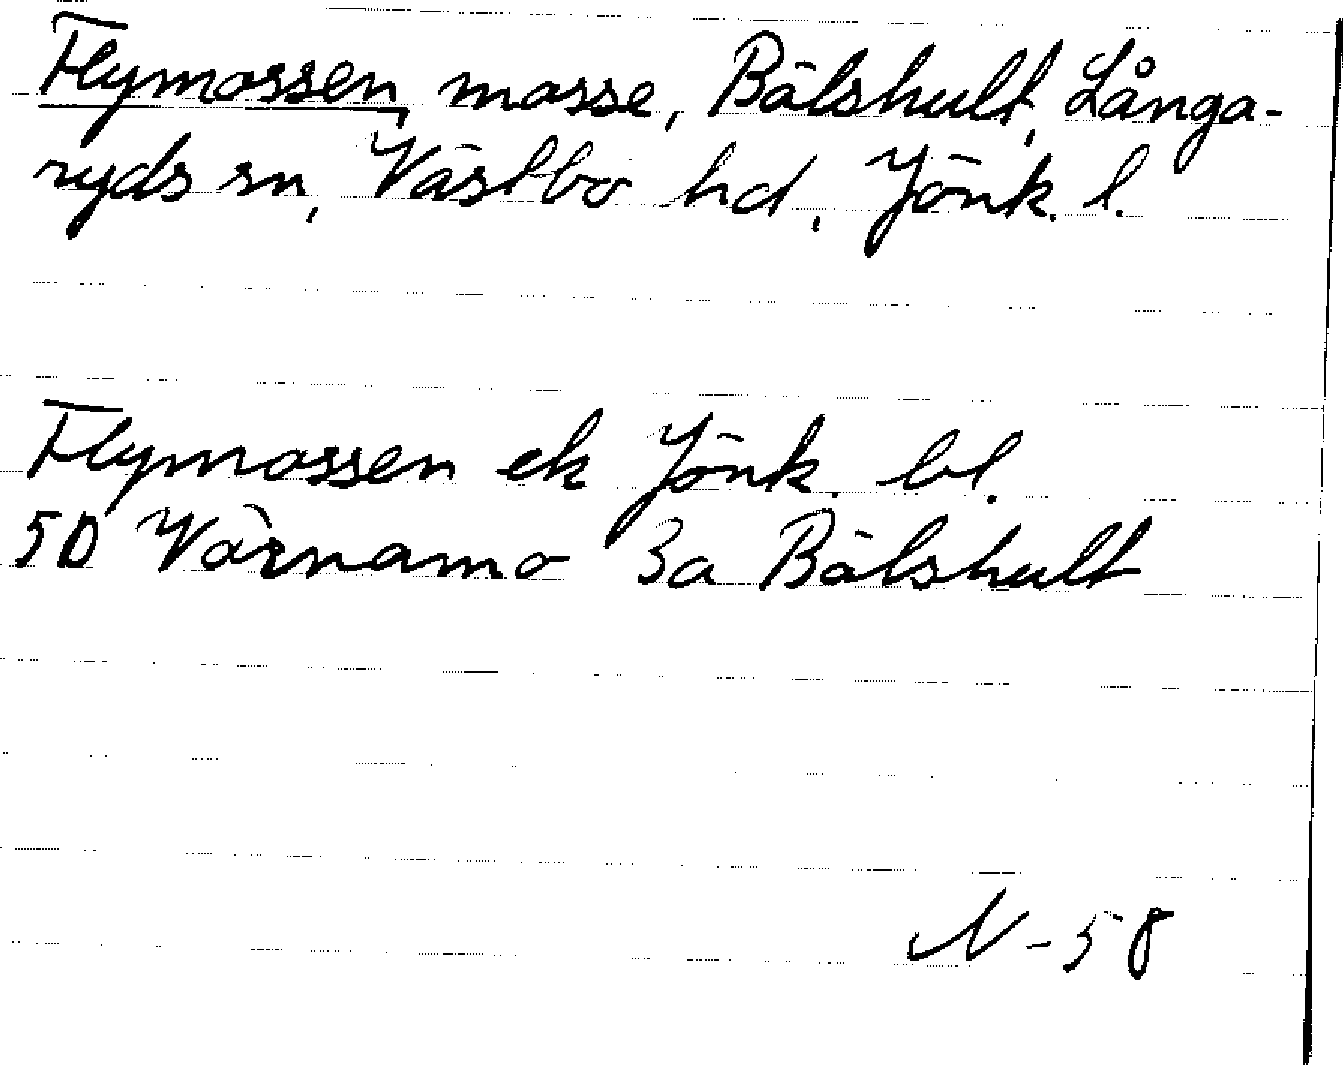 Flymossen, mosse, Bälshult, Långa-
ryds sn, Västbo hd, Jönk. l.
Flymossen ek Jönk. bl.
5D Värnamo 3a Bälshult
N-58